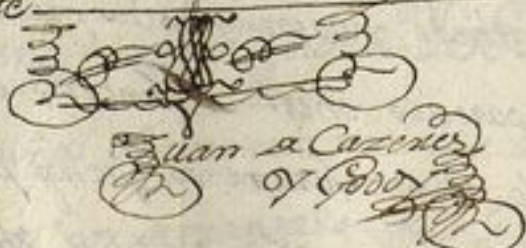 Juan de Cazeres
y Godoy